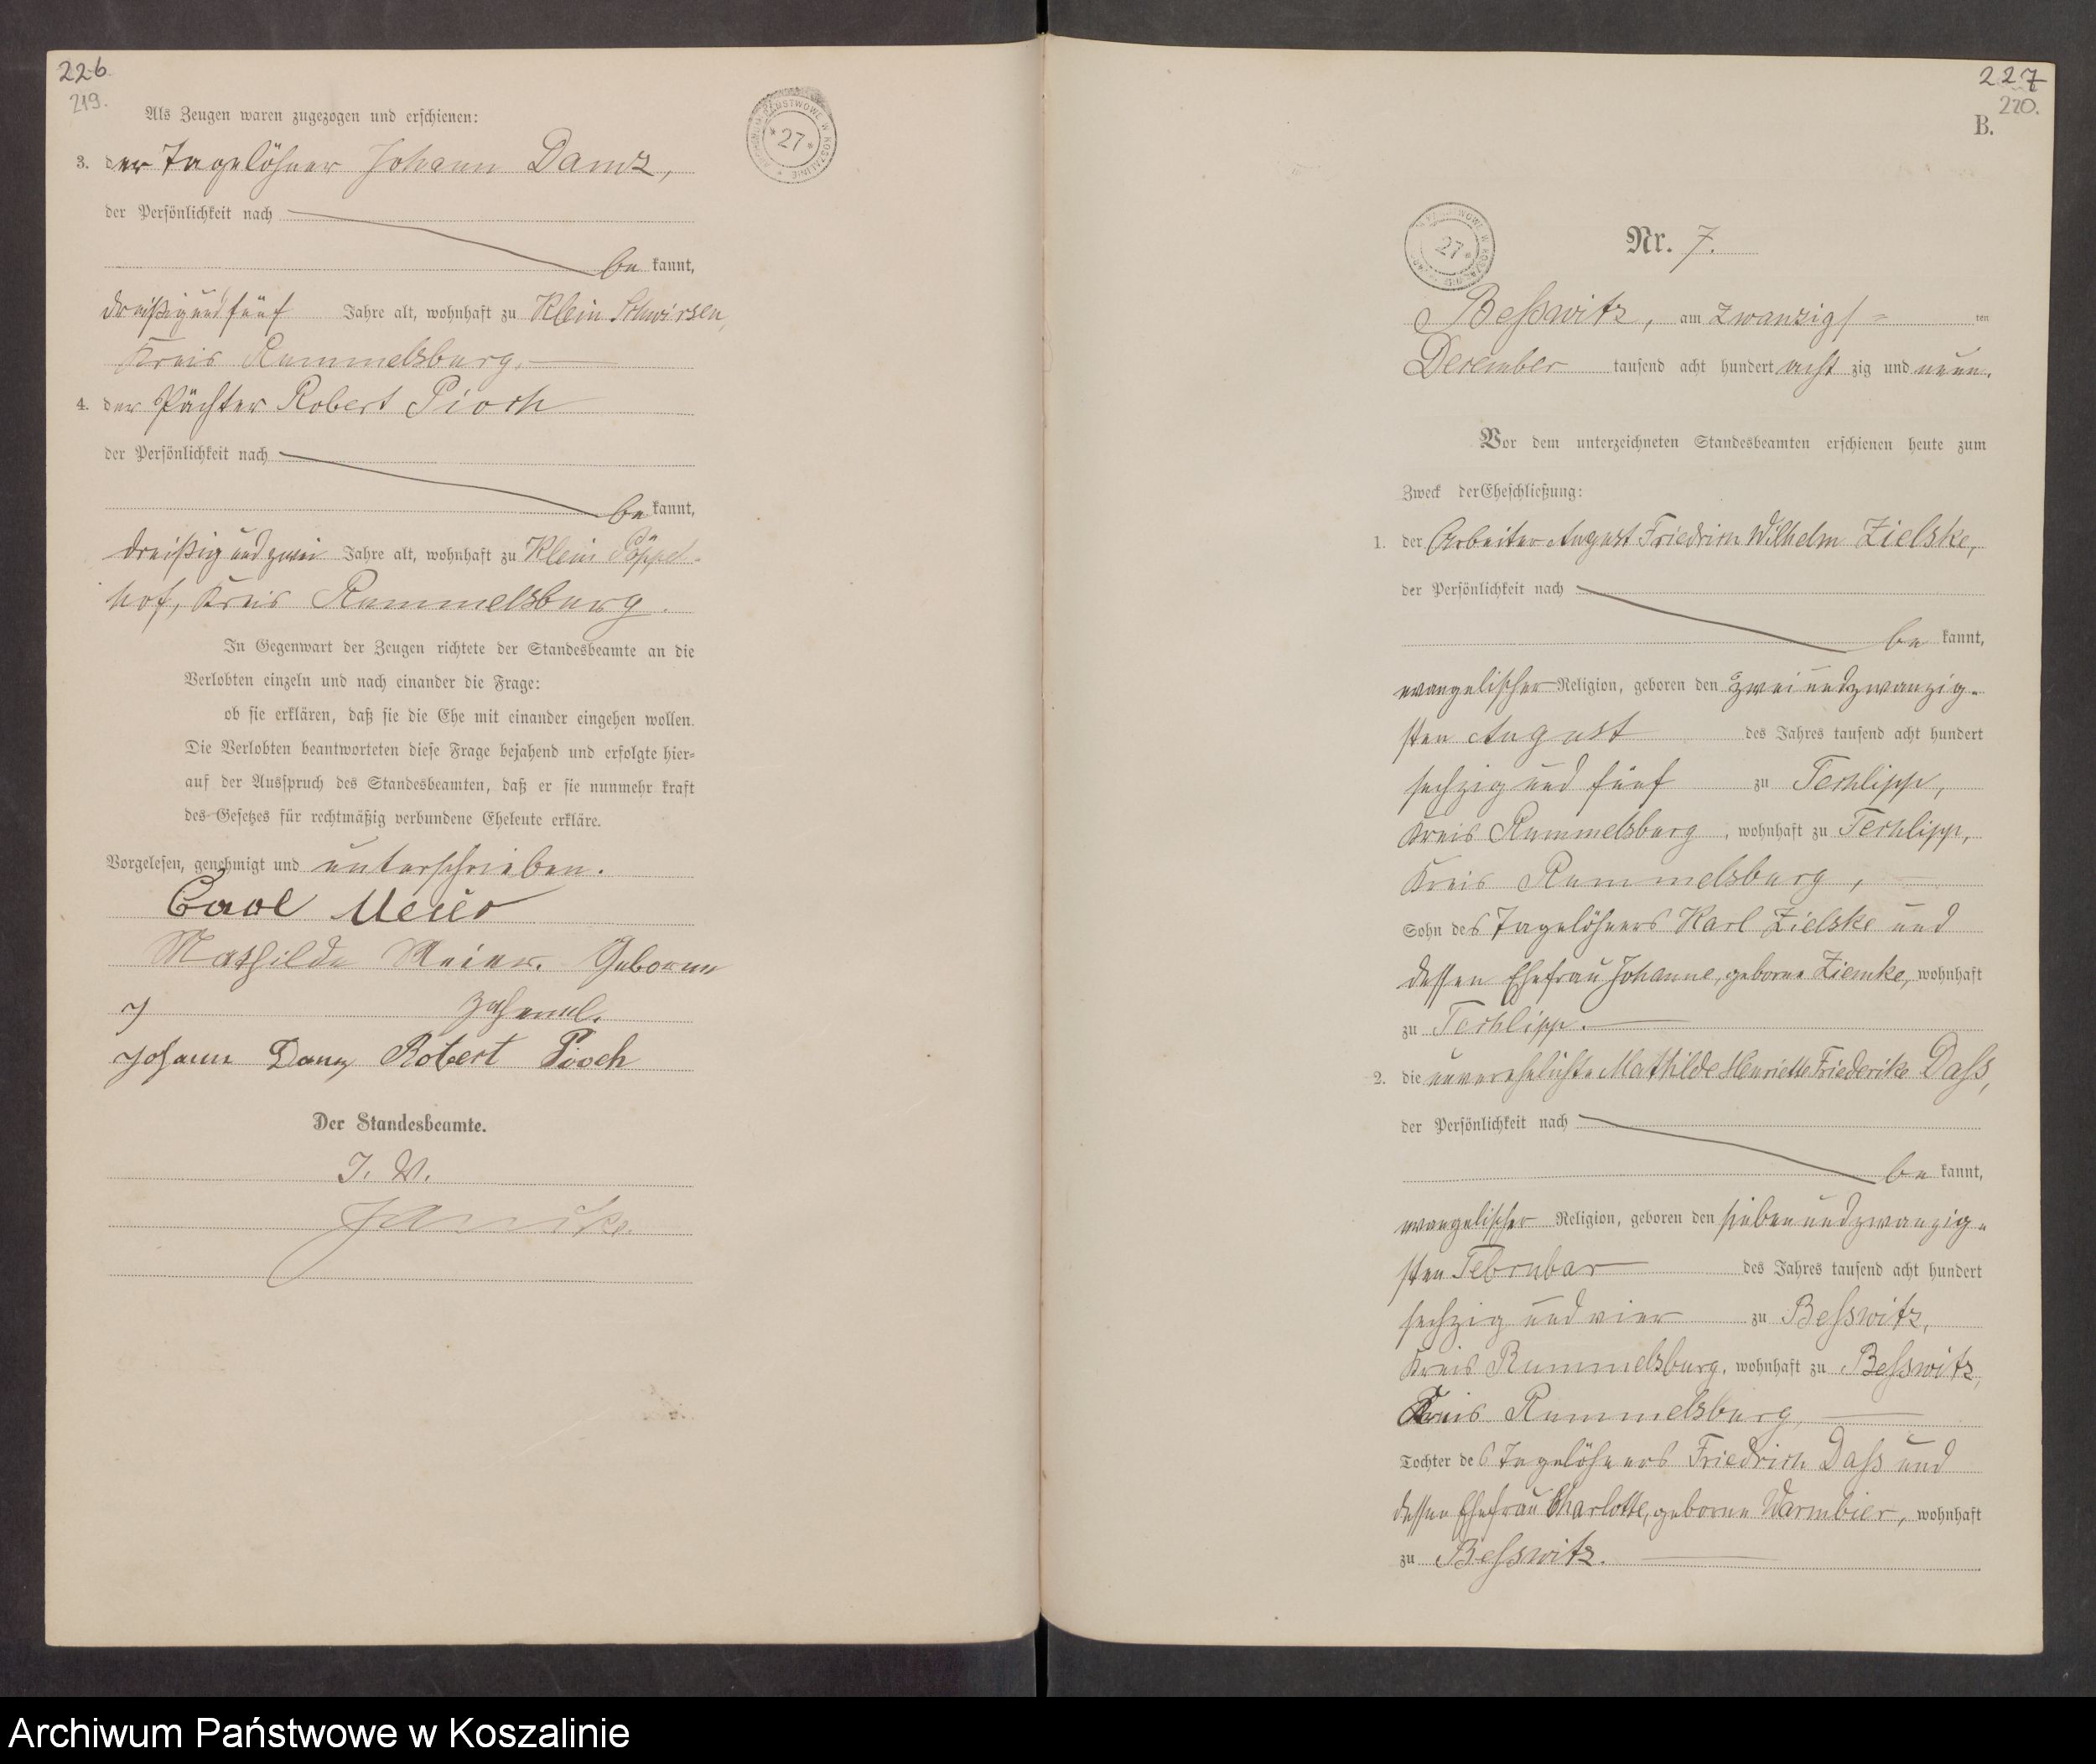 226
219.
Als Zeugen waren zugezogen und erschienen:
3. der Tagelöhner Johann Damz,
der Persönlichkeit nach
be kannt,
dreißig und fünf Jahre alt, wohnhaft zu Klein Schwirsen,
Kreis Rummelsburg,
4. der Pächter Robert Pioch
der Persönlichkeit nach
be kannt,
dreißig und zwei Jahre alt, wohnhaft zu Klein
hof, Kreis Rummelsburg.
In Gegenwart der Zeugen richtete der Standesbeamte an die
Verlobten einzeln und nach einander die Frage:
ob sie erklären, daß sie die Ehe mit einander eingehen wollen.
Die Verlobten beantworteten diese Frage bejahend und erfolgte hier=
auf der Ausspruch des Standesbeamten, daß er sie nunmehr kraft
des Gesetzes für rechtmäßig verbundene Eheleute erkläre.
Vorgelesen, genehmigt und unterschrieben.
Carl Meier
Mathilde Meier. Geborene
Johann Damz Robert Pioch
Der Standesbeamte.
I. V.
27
227
220.
B.
27
Nr. 7.
Beßwitz, am zwanzigs= ten
December tausend acht hundert acht zig und neun.
Vor dem unterzeichneten Standesbeamten erschienen heute zum
Zweck der Eheschließung:
1. der Arbeiter August Friedrich Wilhelm Zielske,
der Persönlichkeit nach
be kannt,
evangelischer Religion, geboren den zwei und zwanzig=
sten August des Jahres tausend acht hundert
sechzig und fünf zu Techlipp,
Kreis Rummelsburg, wohnhaft zu Techlipp,
Kreis Rummelsburg,
Sohn des Tagelöhners Karl Zielske und
dessen Ehefrau Johanne, geborne Ziemke, wohnhaft
zu Techlipp.
2. die unverehelichte Mathilde Henriette Friederike Daß,
der Persönlichkeit nach
be kannt,
evangelischer Religion, geboren den sieben und zwanzig=
sten Februar des Jahres tausend acht hundert
sechzig und vier zu Beßwitz,
Kreis Rummelsburg, wohnhaft zu Beßwitz,
Kreis Rummelsburg,
Tochter des Tagelöhners Friedrich Daß und
dessen Ehefrau Charlotte, geborne Warmbier, wohnhaft
zu Beßwitz.
Archiwum Państwowe w Koszalinie